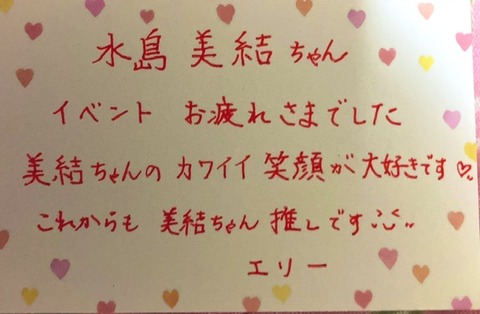 水島 美結ちゃん
イベント お疲れさまでした
美結ちゃんの カワイイ 笑顔が 大好きです♡
これからも 美結ちゃん 推しです
エリー